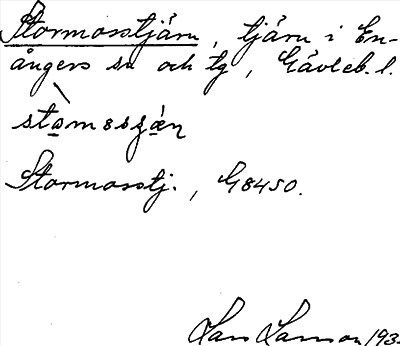 Stormosstjärn, tjärn i En-
ångers sn och tg, Gävleb. l.
Stormosstj., G8450.
Lars Larson 193